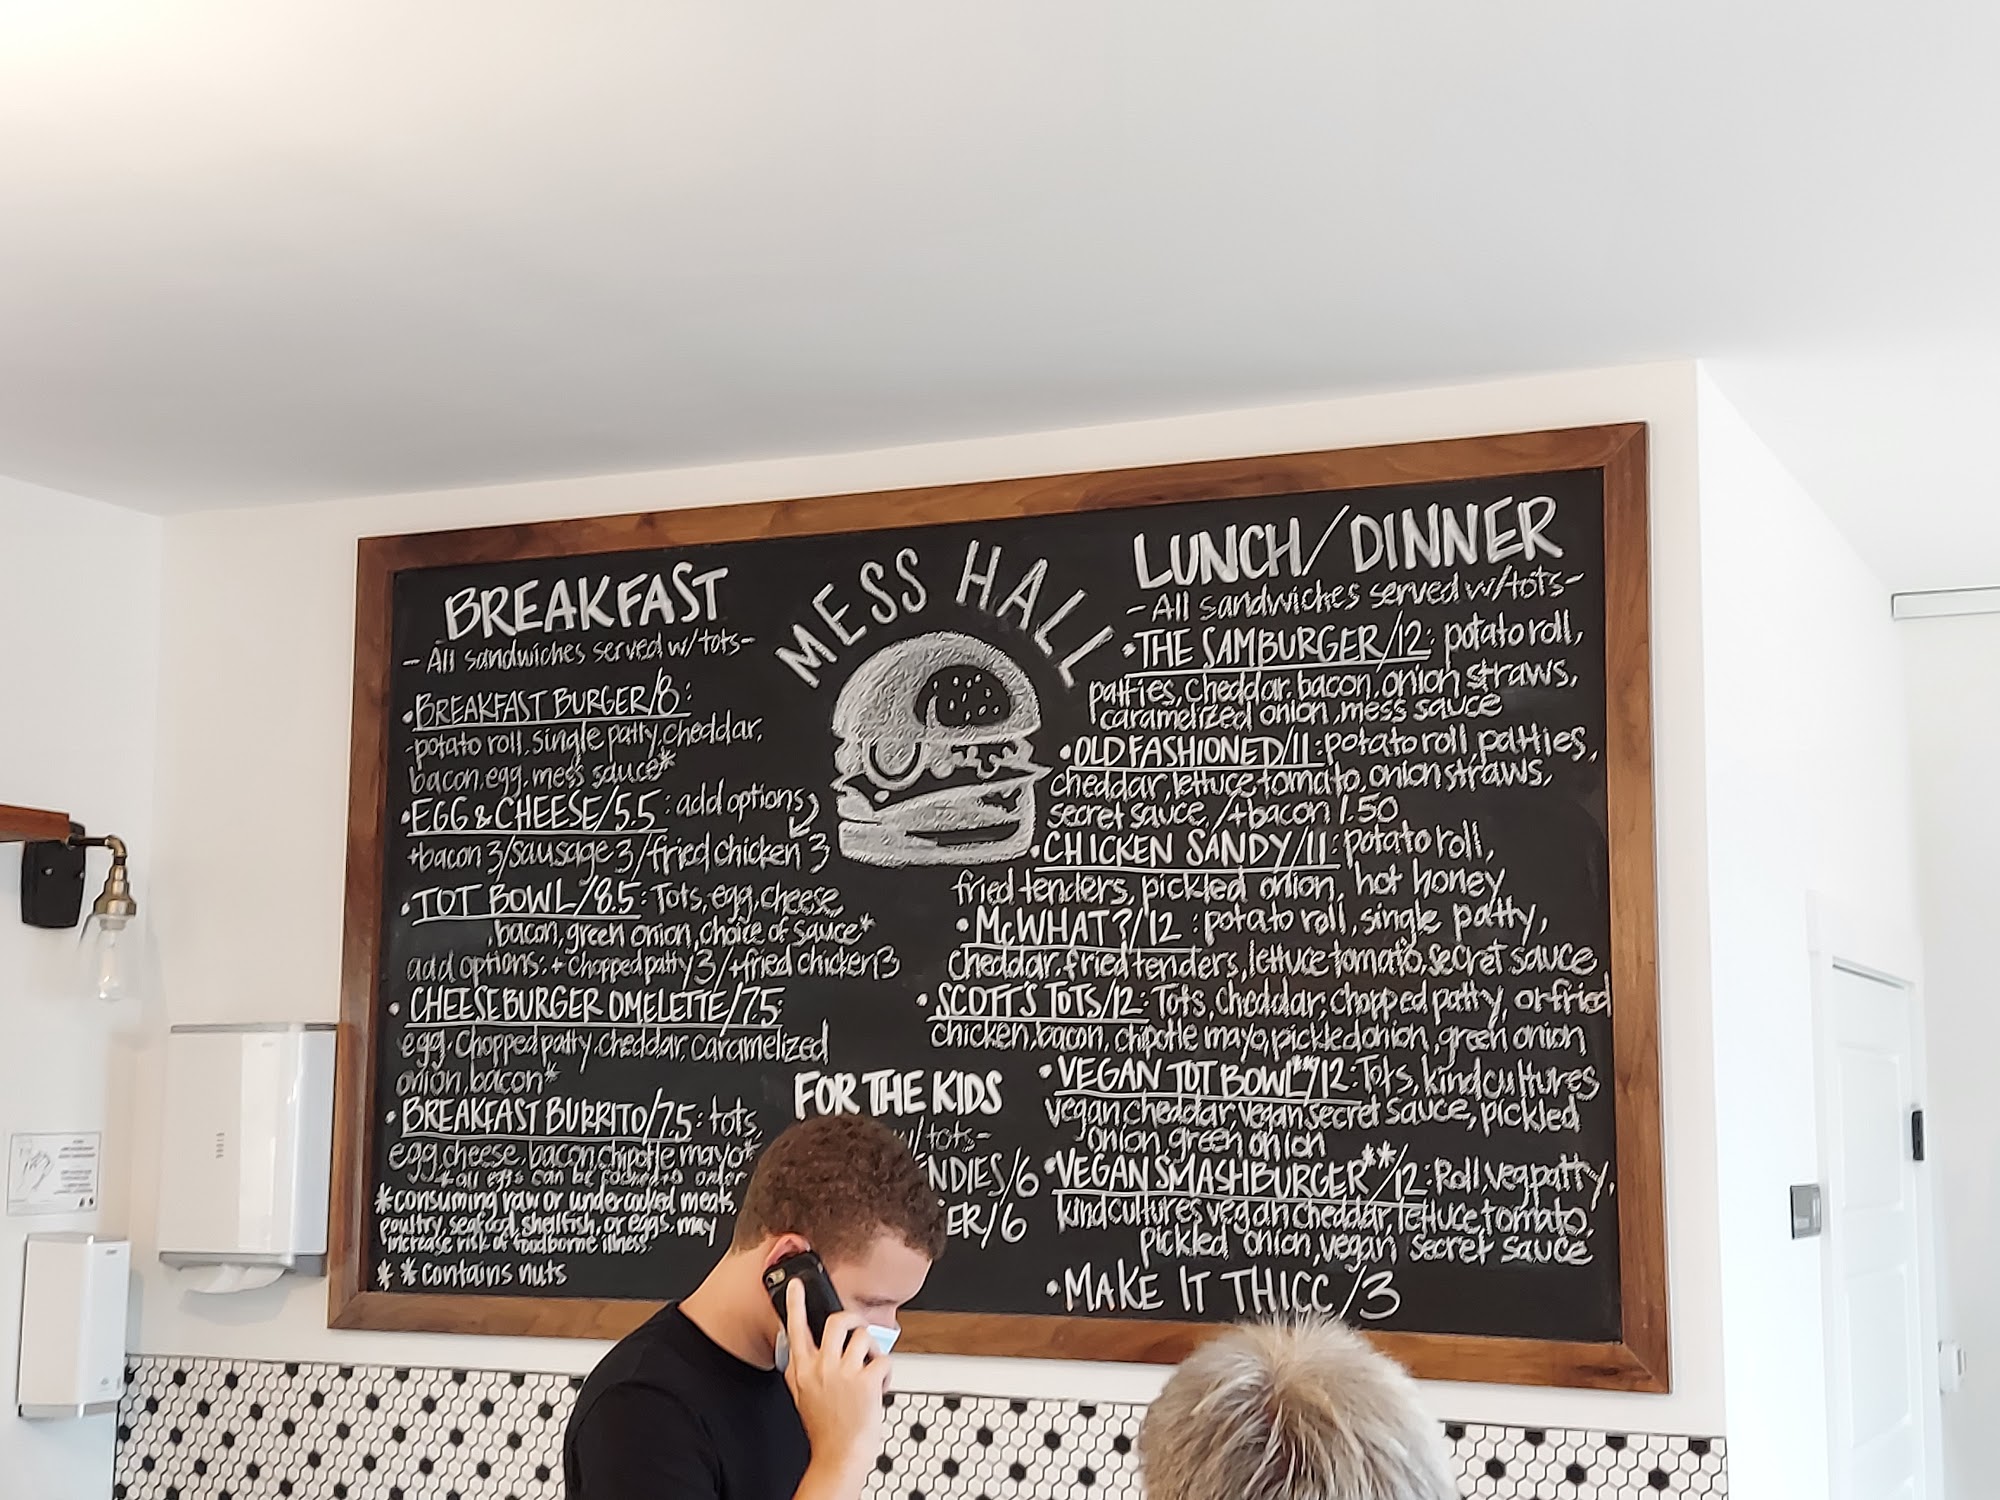 BREAKFAST
- All sandwiches served w/tots -
• BREAKFAST BURGER/8:
-potato roll, single patty, cheddar,
bacon, egg, mess sauce*
• EGG & CHEESE/5.5: add options
+bacon 3/sausage 3/fried chicken 3
• TOT BOWL/8.5: Tots, egg, cheese,
bacon, green onion, choice of sauce*
add options: + Chopped patty 3/+fried chicken 3
• CHEESEBURGER OMELETTE/7.5:
egg, Chopped patty, cheddar, caramelized
onion, bacon*
• BREAKFAST BURRITO/7.5: tots,
egg, cheese, bacon, chipotle mayo*
*all eggs can be cooked to order
*consuming raw or undercooked meats,
poultry, seafood, shellfish, or eggs, may
increase risk of foodborne illness.
* *contains nuts
MESS HALL
FOR THE KIDS
w/tots-
NDIES/6
ER/6
LUNCH/DINNER
- All sandwiches served w/tots -
• THE SAMBURGER/12: potato roll,
patties, cheddar, bacon, onion straws,
caramelized onion, mess sauce
• OLD FASHIONED/11: potato roll, patties,
cheddar, lettuce, tomato, onion straws,
secret sauce, /+bacon 1.50
• CHICKEN SANDY/11: potato roll,
fried tenders, pickled onion, hot honey
• McWHAT?/12: potato roll, single patty,
cheddar, fried tenders, lettuce tomato, secret sauce
• SCOTT'S TOTS/12: Tots, Cheddar, chopped patty, or fried
chicken, bacon, chipotle mayo, pickled onion, green onion
• VEGAN TOT BOWL**/12: Tots, kindcultures
vegan cheddar, vegan secret sauce, pickled
onion, green onion
• VEGAN SMASHBURGER**/12: Roll, veg patty,
kindcultures vegan cheddar, lettuce, tomato,
pickled onion, vegan secret sauce
• MAKE IT THICC/3